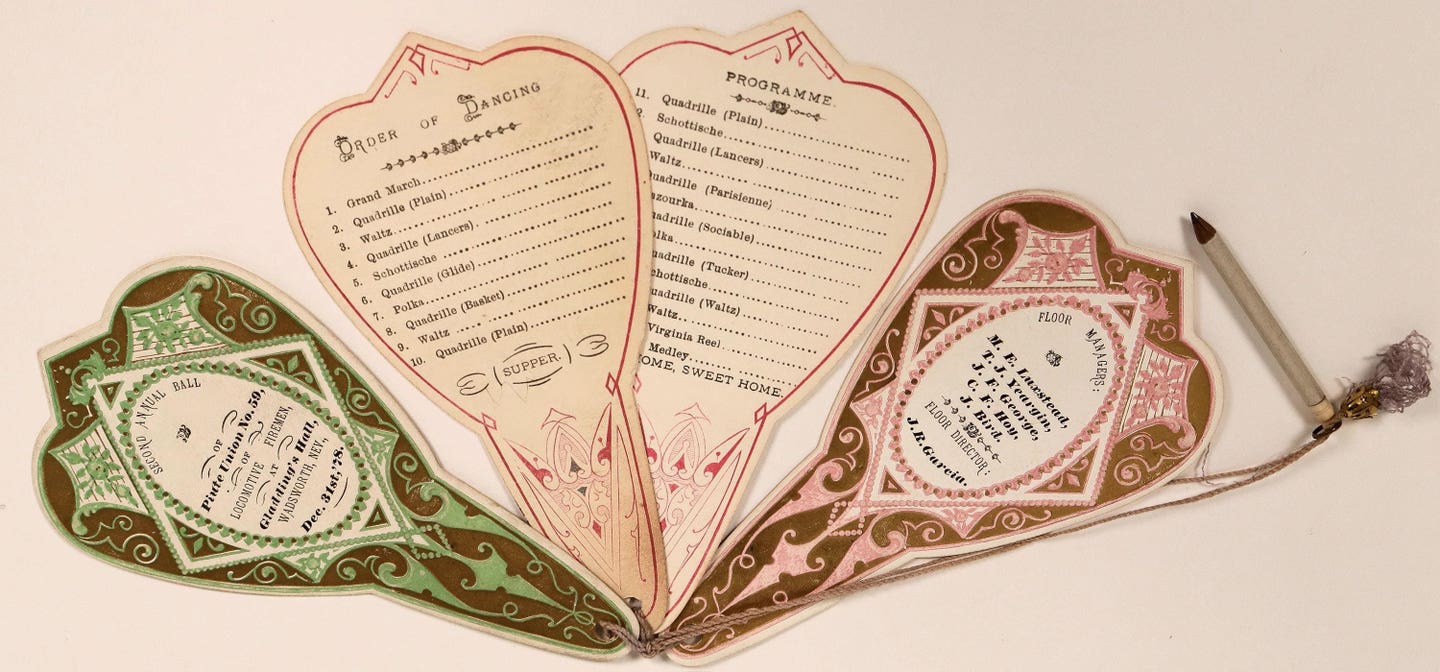 SECOND ANNUAL BALL
OF
Piute Union No. 59,
OF
LOCOMOTIVE FIREMEN,
AT
Gladding's Hall,
WADSWORTH, NEV.,
Dec. 31st, '78.
ORDER OF DANCING
1. Grand March
2. Quadrille (Plain)
3. Waltz
4. Quadrille (Lancers)
5. Schottische
6. Quadrille (Glide)
7. Polka
8. Quadrille (Basket)
9. Waltz
10. Quadrille (Plain)
SUPPER.
PROGRAMME.
11. Quadrille (Plain)
Schottische
Quadrille (Lancers)
Waltz
uadrille (Parisienne)
azourka
uadrille (Sociable)
olka
uadrille (Tucker)
chottische
uadrille (Waltz)
Waltz
Virginia Reel
Medley
OME, SWEET HOME.
FLOOR MANAGERS:
M. E. Luxstead,
T. J. Yeargin,
J. F. George,
C. F. Hoy,
J. Bird.
FLOOR DIRECTOR:
J. R. Garcia.